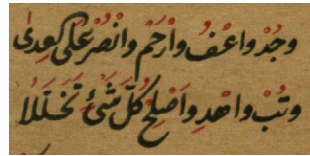 وجُدْ واعْفُ وارْحَمْ وانْصُرْ عَلَى كل عِدى
وتُبْ واهْدِ واصْلِحْ كُلَّ شَئٍ تَخَلَّلَا